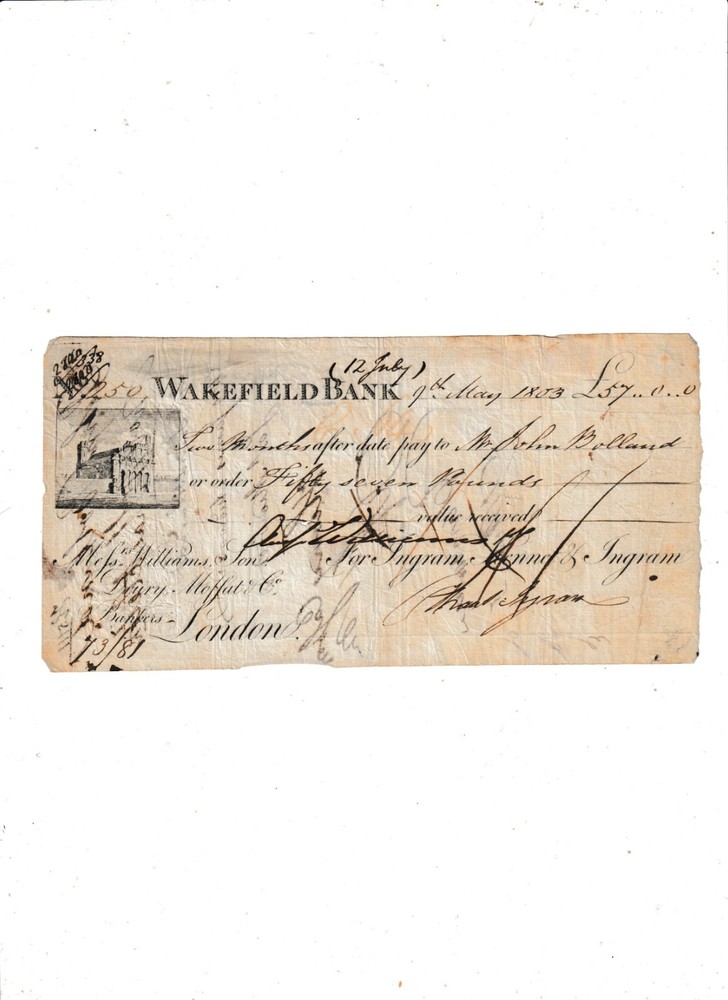 (12 July)
250, WAKEFIELD BANK 9th May 1803 £57..0..0
Two Months after date pay to Mr. John Bolland
or order Fifty seven Pounds
value received
Messrs. Williams, Son For Ingram, & Ingram
Drury, Moffat & Co.
Bankers
London.
73/81